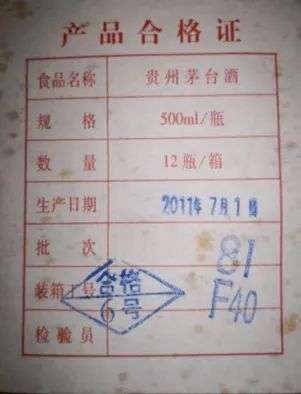 产品合格证
食品名称 贵州茅台酒
规格 500ml/瓶
数量 12瓶/箱
生产日期 2011年7月1日
批次 81
装箱工号 F40
合格
6号
检验员